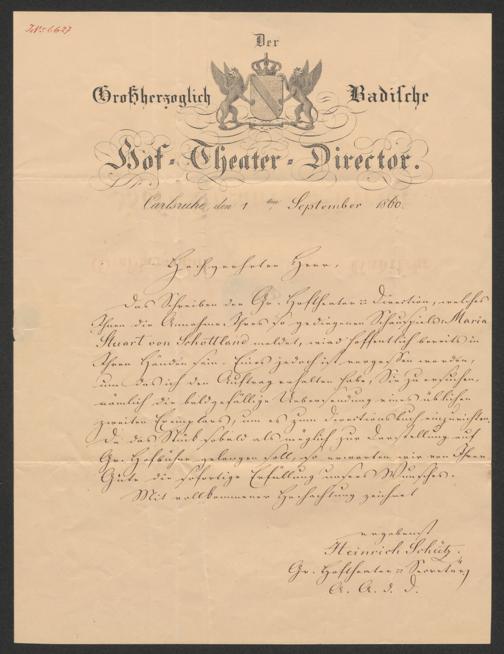 INr. 6627
Der
Großherzoglich Badische
Hof-Theater-Director.
Carlsruhe, den 1 ten September 1860.
Hochgeehrter Herr,
Das Schreiben der Gr. Hoftheater=Direction, welches
Ihnen die Annahme Ihres so gediegenen Schauspiels Maria
Stuart von Schottland meldet, wird hoffentlich bereits in
Ihren Händen sein. Eines jedoch ist vergessen worden,
um das ich den Auftrag erhalten habe, Sie zu ersuchen,
nämlich die baldgefällige Uebersendung eines üblichen
zweiten Exemplars, um es zum Directionsbuch einzurichten.
Da das Stück sobald als möglich zur Darstellung auf
Gr. Hofbühne gelangen soll, so erwarten wir von Ihrer
Güte die sofortige Erfüllung unseres Wunsches.
Mit vollkommener Hochachtung zeichnet
ergebenst
Heinrich Schütz.
Gr. Hoftheater=Secretär
A. A. d. D.